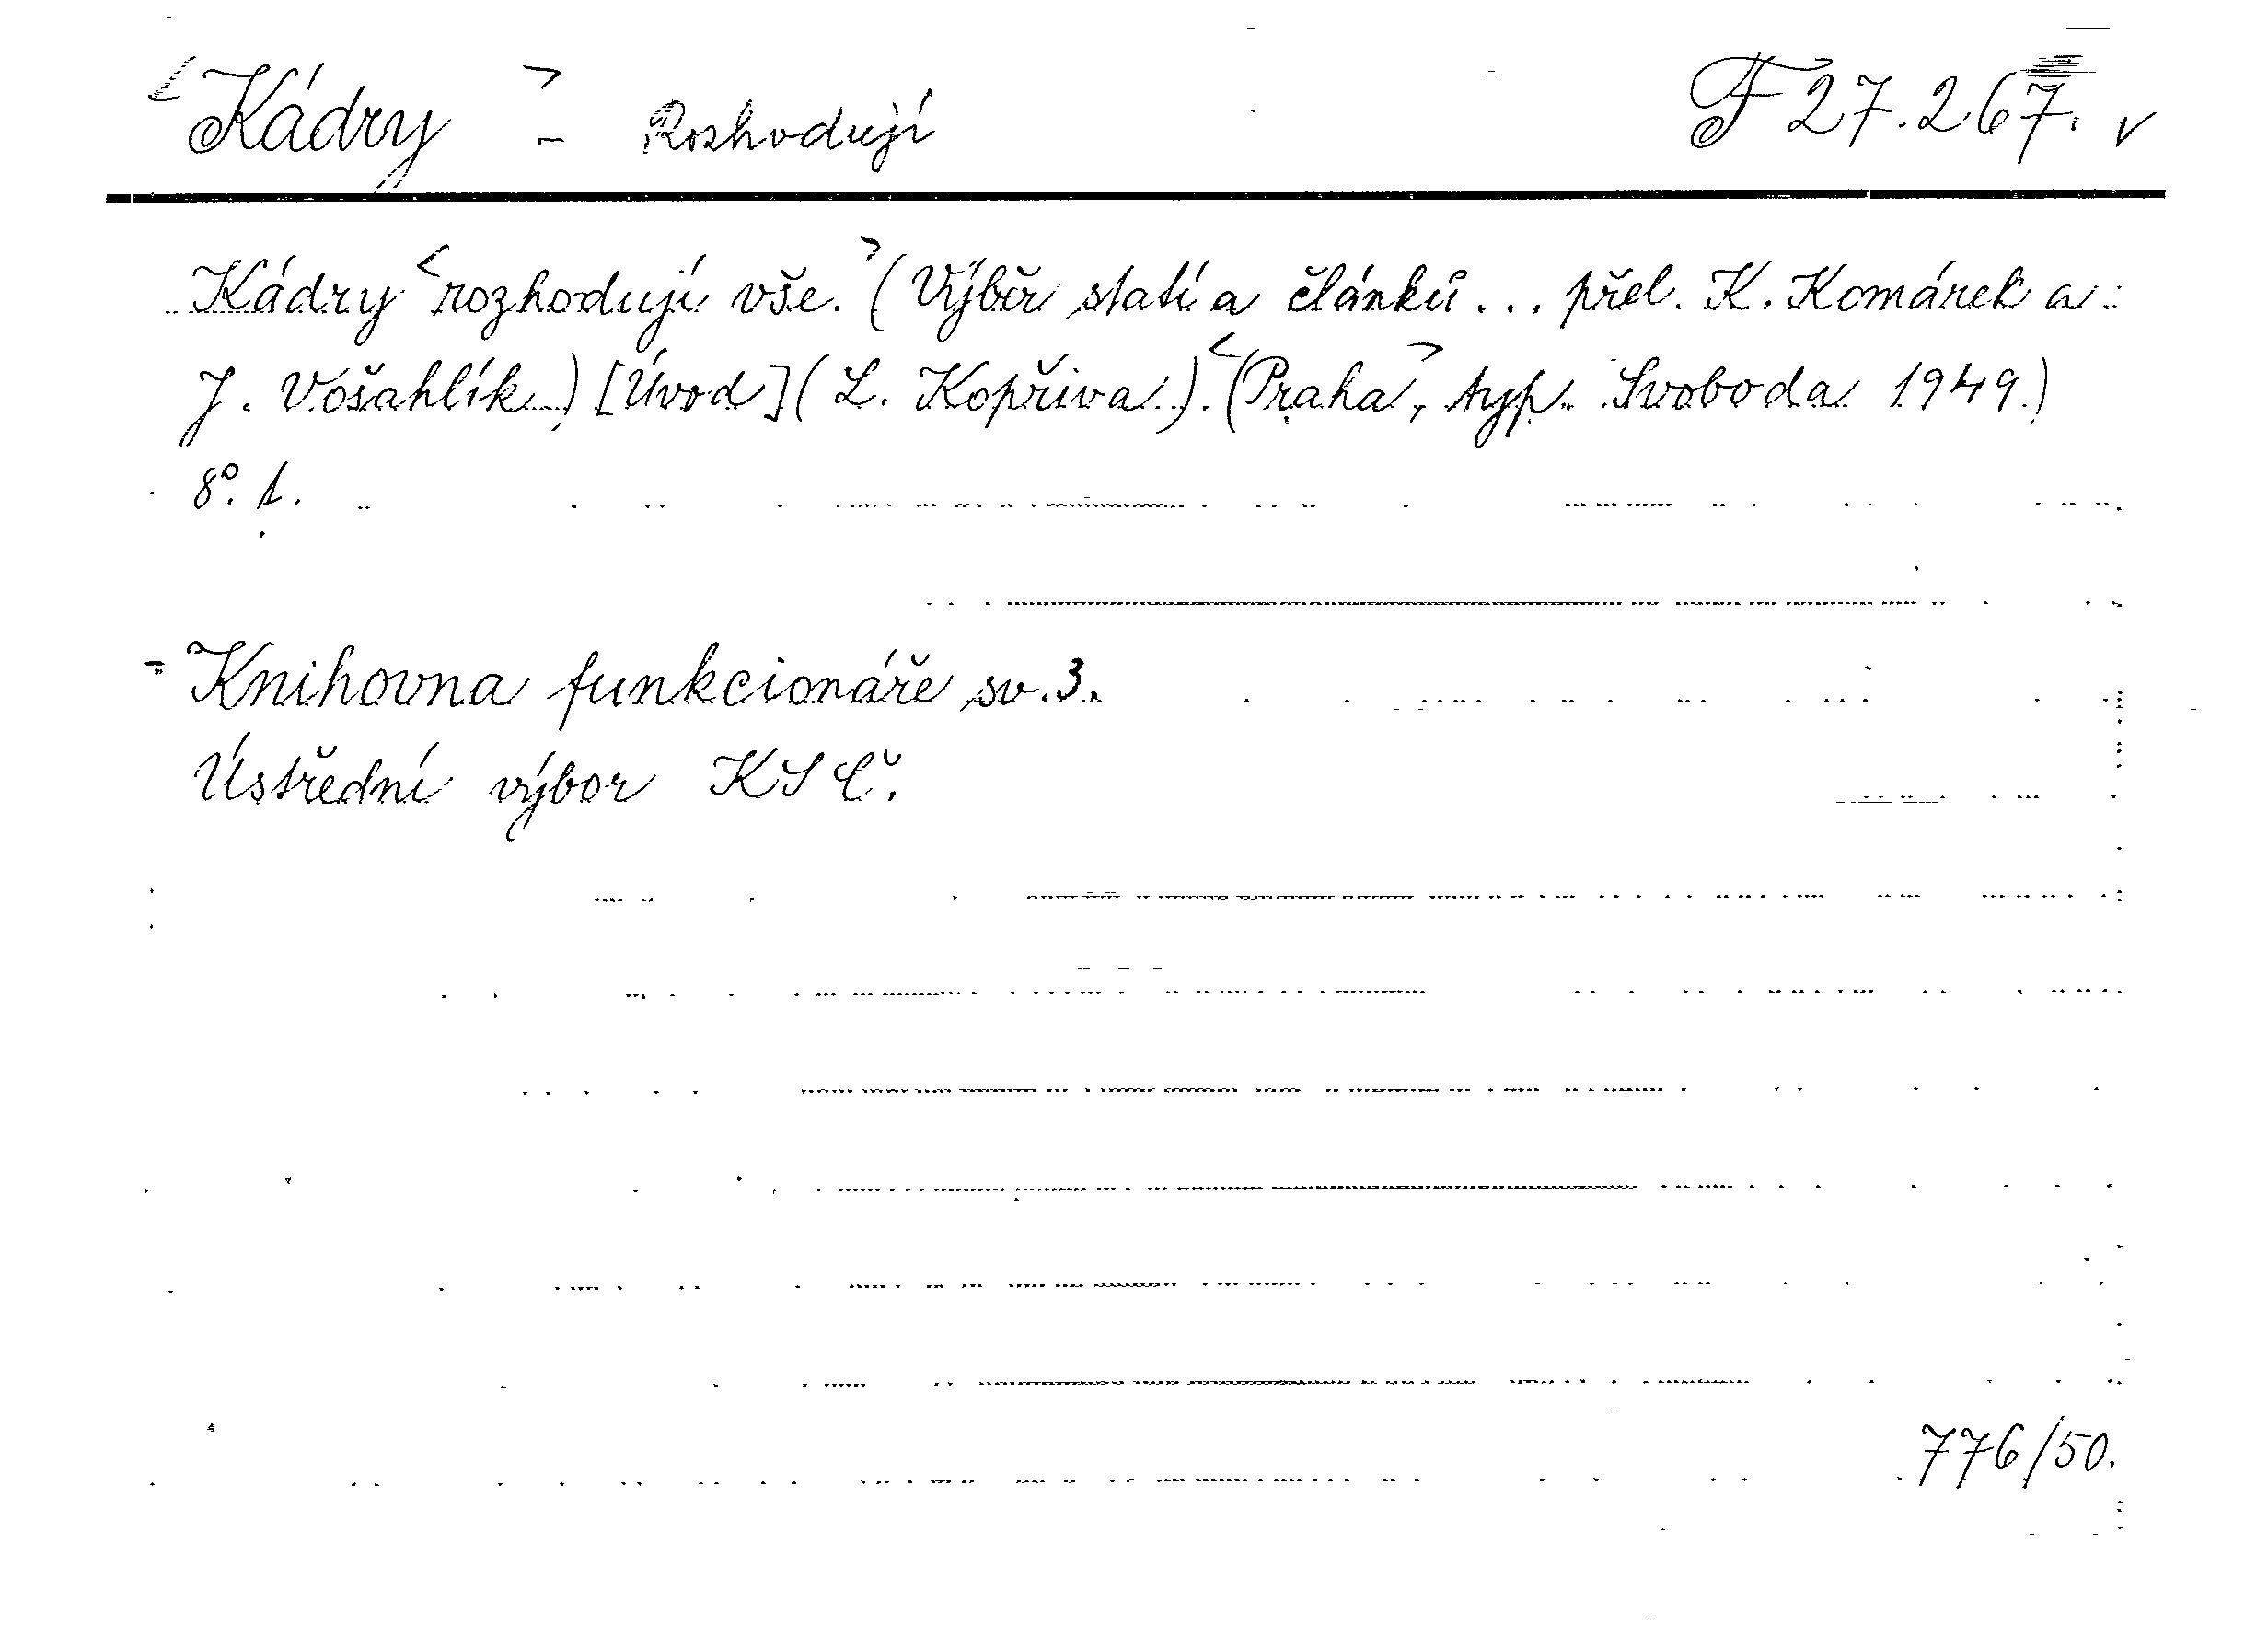 <Kádry> - Rozhodují F 27.267. v
Kádry <rozhodují vše.> (Výběr statí a článků... přel. K. Komárek a
J. Vošahlík) [Úvod] (L. Kopřiva). <(Praha>, typ. Svoboda 1949.)
8°. 1.
Knihovna funkcionáře sv. 3.
Ústřední výbor KSČ.
776/50.